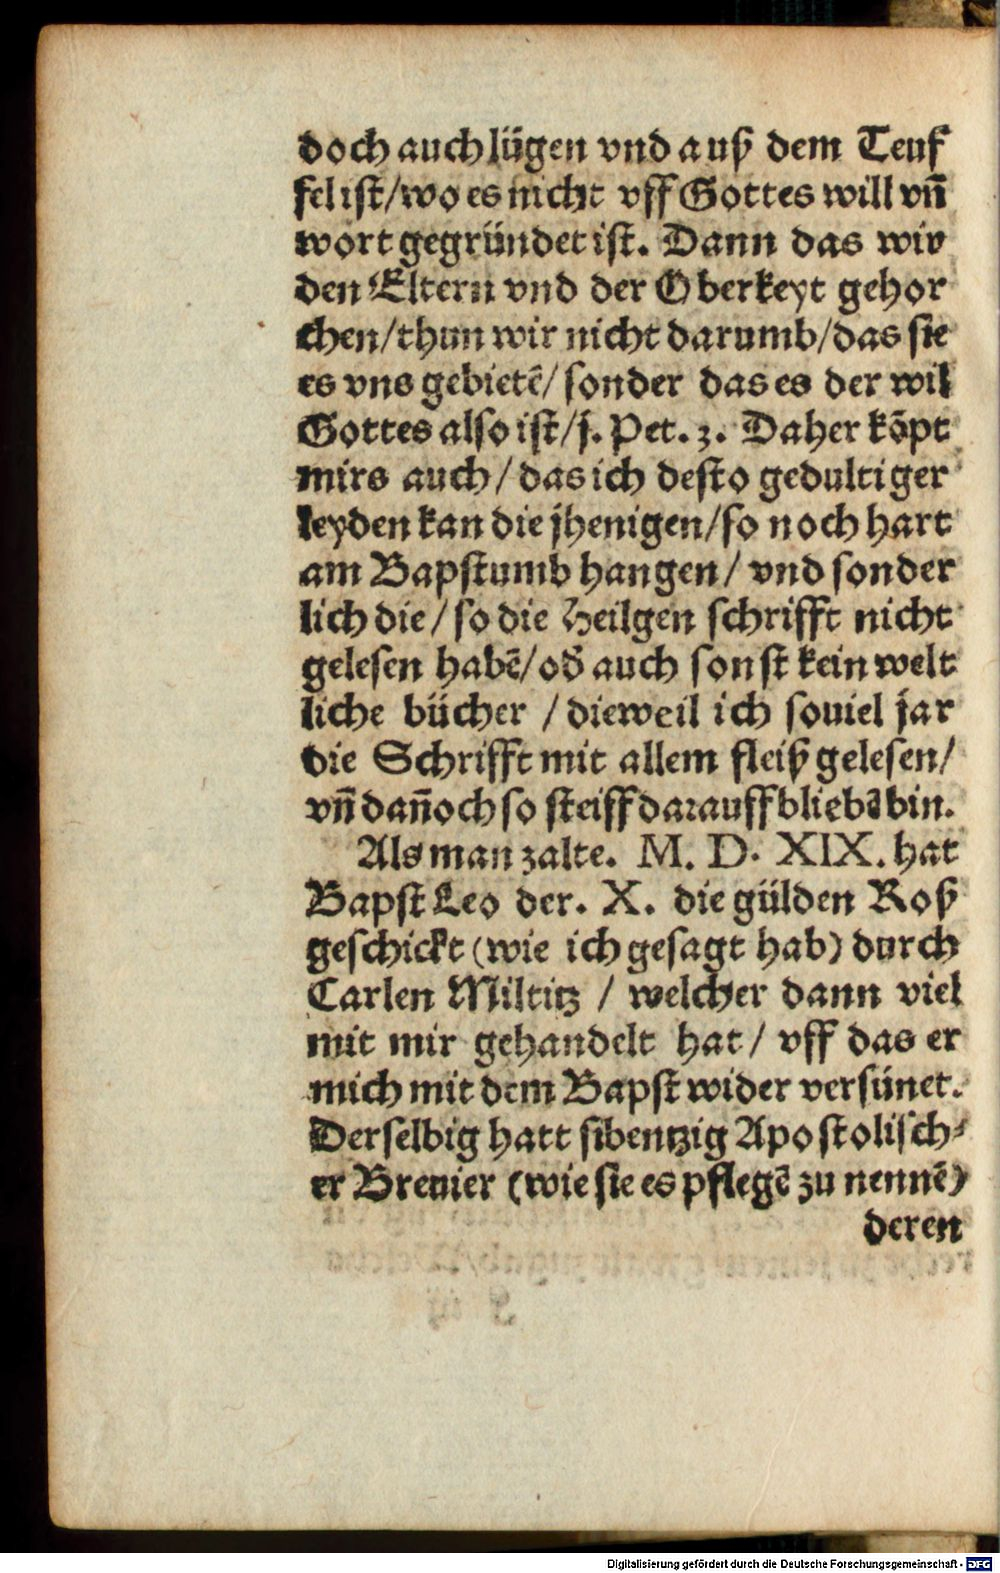 doch auch lügen vnd auß dem Teuf
fel ist/wo es nicht vff Gottes will vñ
wort gegründet ist. Dann das wir
den Eltern vnd der Oberkeyt gehor
chen/thun wir nicht darumb/das sie
es vns gebietẽ/sonder das es der wil
Gottes also ist/j. Pet. 3. Daher kõpt
mirs auch/das ich desto gedultiger
leyden kan die jhenigen/so noch hart
am Bapstumb hangen/ vnd sonder
lich die/so die Heilgen schrifft nicht
gelesen habẽ/od̃ auch sonst kein welt
liche bücher /dieweil ich souiel jar
die Schrifft mit allem fleiß gelesen/
vñ dañoch so steiff darauff bliebẽ bin.
Als man zalte. M. D. XIX. hat
Bapst Leo der. X. die gülden Roß
geschickt (wie ich gesagt hab) durch
Carlen Miltitz / welcher dann viel
mit mir gehandelt hat/ vff das er
mich mit dem Bapst wider versünet.
Derselbig hatt sibentzig Apostolisch⸗
er Breuier (wie sie es pflegẽ zu nennẽ)
deren
Digitalisierung gefördert durch die Deutsche Forschungsgemeinschaft - DFG